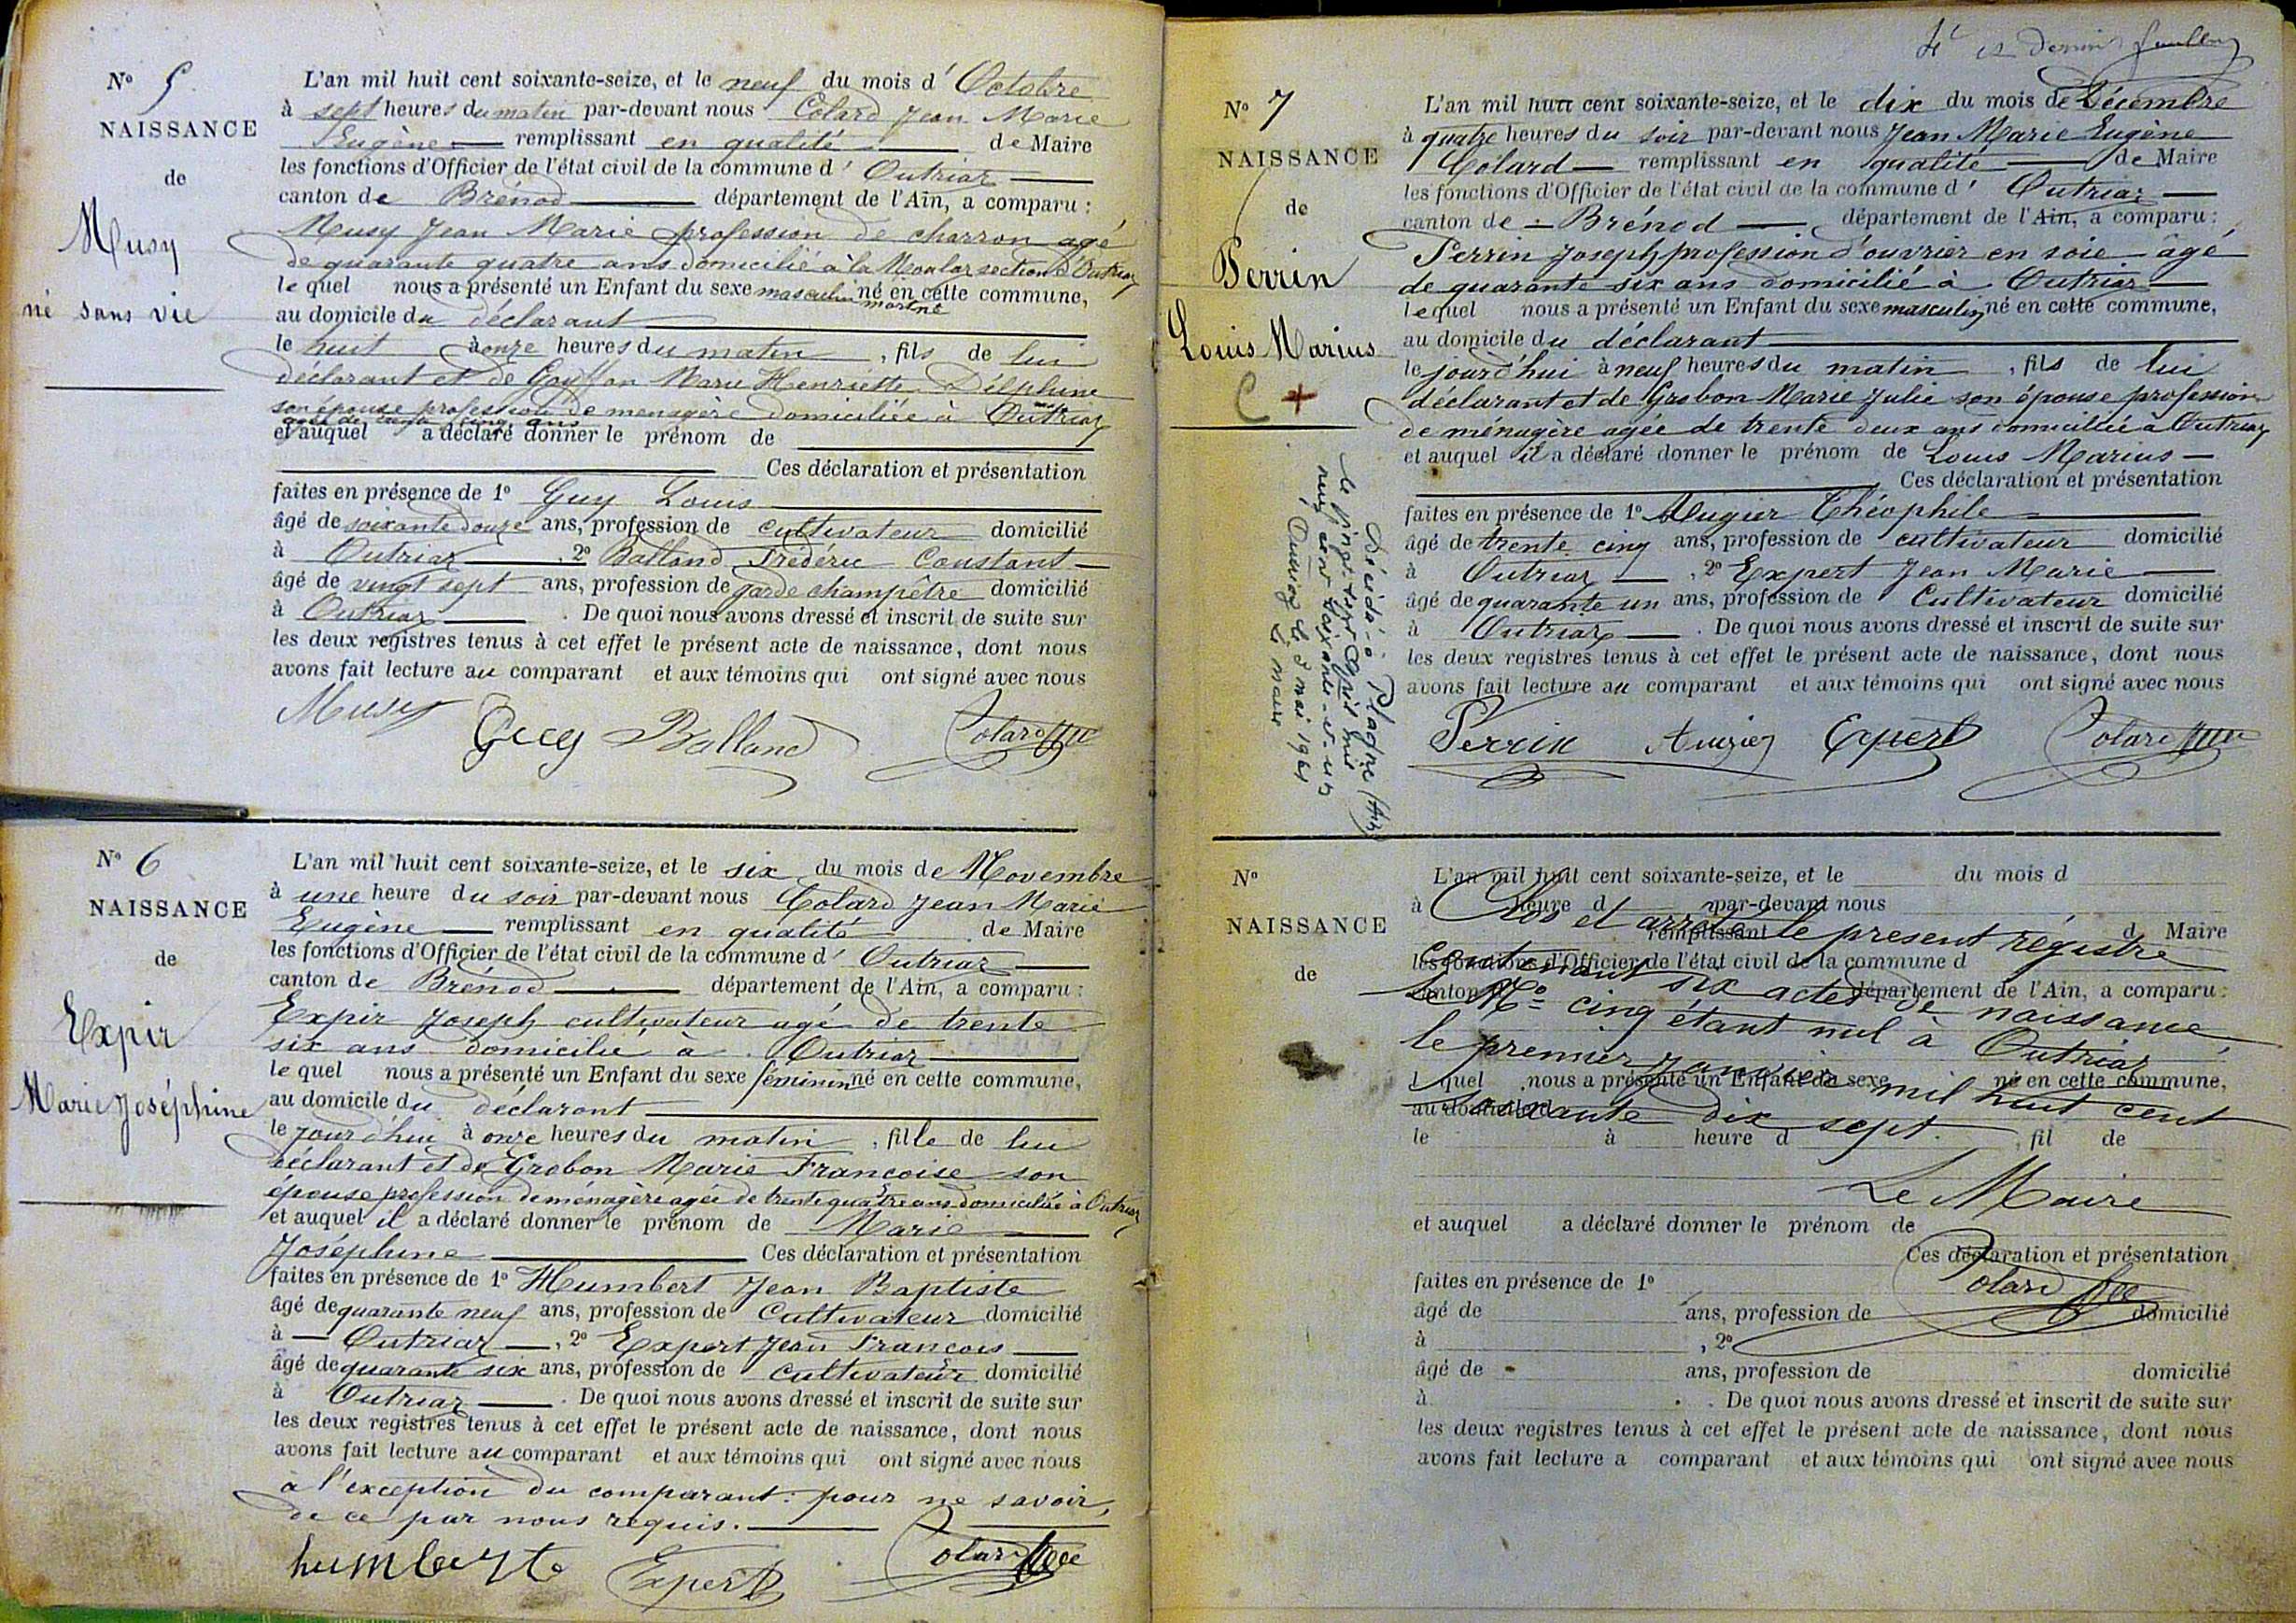 N° 5
NAISSANCE
de
Musy
né sans vie
L'an mil huit cent soixante-seize, et le neuf du mois d' Octobre
à sept heures du matin par-devant nous Colard Jean Marie
Eugène remplissant en qualité de Maire
les fonctions d'Officier de l'état civil de la commune d' Outriaz
canton de Brénod département de l'Ain, a comparu :
Musy Jean Marie profession de charron agé
de quarante quatre ans domicilié à la Moular section d'Outriaz
le quel nous a présenté un Enfant du sexe masculin né en cette commune,
mort né
au domicile du déclarant
le huit à onze heures du matin, fils de lui
déclarant et de Goyffon Marie Henriette Delphine
son épouse profession de menagère domiciliée à Outriaz
agée de trente cinq ans
et auquel a déclaré donner le prénom de
Ces déclaration et présentation
faites en présence de 1° Guy Louis
âgé de soixante douze ans, profession de cultivateur domicilié
à Outriaz, 2° Balland Frédéric Constant
âgé de vingt sept ans, profession de garde champêtre domicilié
à Outriaz. De quoi nous avons dressé et inscrit de suite sur
les deux registres tenus à cet effet le présent acte de naissance, dont nous
avons fait lecture au comparant et aux témoins qui ont signé avec nous
Musy Guy Balland Colard
N° 6
NAISSANCE
de
Expir
Marie Joséphine
L'an mil huit cent soixante-seize, et le six du mois de Novembre
à une heure du soir par-devant nous Colard Jean Marie
Eugène remplissant en qualité de Maire
les fonctions d'Officier de l'état civil de la commune d' Outriaz
canton de Brénod département de l'Ain, a comparu :
Expir Joseph cultivateur agé de trente
six ans domicilié à Outriaz
le quel nous a présenté un Enfant du sexe féminin né en cette commune,
au domicile du déclarant
le jour d'hui à onze heures du matin, fille de lui
déclarant et de Grobon Marie Francoise son
épouse profession de ménagère agée de trente quatre ans domiciliée à Outriaz
et auquel il a déclaré donner le prénom de Marie
Joséphine Ces déclaration et présentation
faites en présence de 1° Humbert Jean Baptiste
âgé de quarante neuf ans, profession de Cultivateur domicilié
à Outriaz, 2° Expert Jean Francois
âgé de quarante six ans, profession de cultivateur domicilié
à Outriaz. De quoi nous avons dressé et inscrit de suite sur
les deux registres tenus à cet effet le présent acte de naissance, dont nous
avons fait lecture au comparant et aux témoins qui ont signé avec nous
à l'exception du comparant pour ne savoir,
de ce par nous requis.
humberte Expert Colard
4e et dernier feuillet
N° 7
NAISSANCE
de
Perrin
Louis Marius
C +
Décédé à Plagne (Ain)
le vingt-sept Avril mil
neuf cent soixante-et-un
Outriaz le 2 mai 1961
Le maire
L'an mil huit cent soixante-seize, et le dix du mois de Décembre
à quatre heures du soir par-devant nous Jean Marie Eugène
Colard remplissant en qualité de Maire
les fonctions d'Officier de l'état civil de la commune d' Outriaz
canton de Brénod département de l'Ain, a comparu :
Perrin Joseph profession d'ouvrier en soie âgé
de quarante six ans domicilié à Outriaz
lequel nous a présenté un Enfant du sexe masculin né en cette commune,
au domicile du déclarant
le jourd'hui à neuf heures du matin, fils de lui
déclarant et de Grobon Marie Julie son épouse profession
de ménagère agée de trente deux ans domiciliée à Outriaz
et auquel il a déclaré donner le prénom de Louis Marius
Ces déclaration et présentation
faites en présence de 1° Augier Théophile
âgé de trente cinq ans, profession de cultivateur domicilié
à Outriaz, 2° Expert Jean Marie
âgé de quarante un ans, profession de Cultivateur domicilié
à Outriaz. De quoi nous avons dressé et inscrit de suite sur
les deux registres tenus à cet effet le présent acte de naissance, dont nous
avons fait lecture au comparant et aux témoins qui ont signé avec nous
Perrin Augier Expert Colard
N°
NAISSANCE
de
L'an mil huit cent soixante-seize, et le du mois d
à heure d par-devant nous
remplissant d Maire
les fonctions d'Officier de l'état civil de la commune d
canton d département de l'Ain, a comparu :
Clos et arrêté le present régistre
contenant six actes de naissance
le N° cinq étant nul à Outriaz
le premier janvier mil huit cent
soixante dix sept.
l quel nous a présenté un Enfant du sexe né en cette commune,
au domicile d
le à heure d, fil de
Le Maire
et auquel a déclaré donner le prénom de
Ces déclaration et présentation
Colard
faites en présence de 1°
âgé de ans, profession de domicilié
à, 2°
âgé de ans, profession de domicilié
à. De quoi nous avons dressé et inscrit de suite sur
les deux registres tenus à cet effet le présent acte de naissance, dont nous
avons fait lecture a comparant et aux témoins qui ont signé avec nous